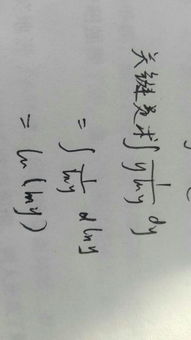 关键是求∫ 1/(y ln y) dy
= ∫ 1/(ln y) d ln y
= ln(ln y)